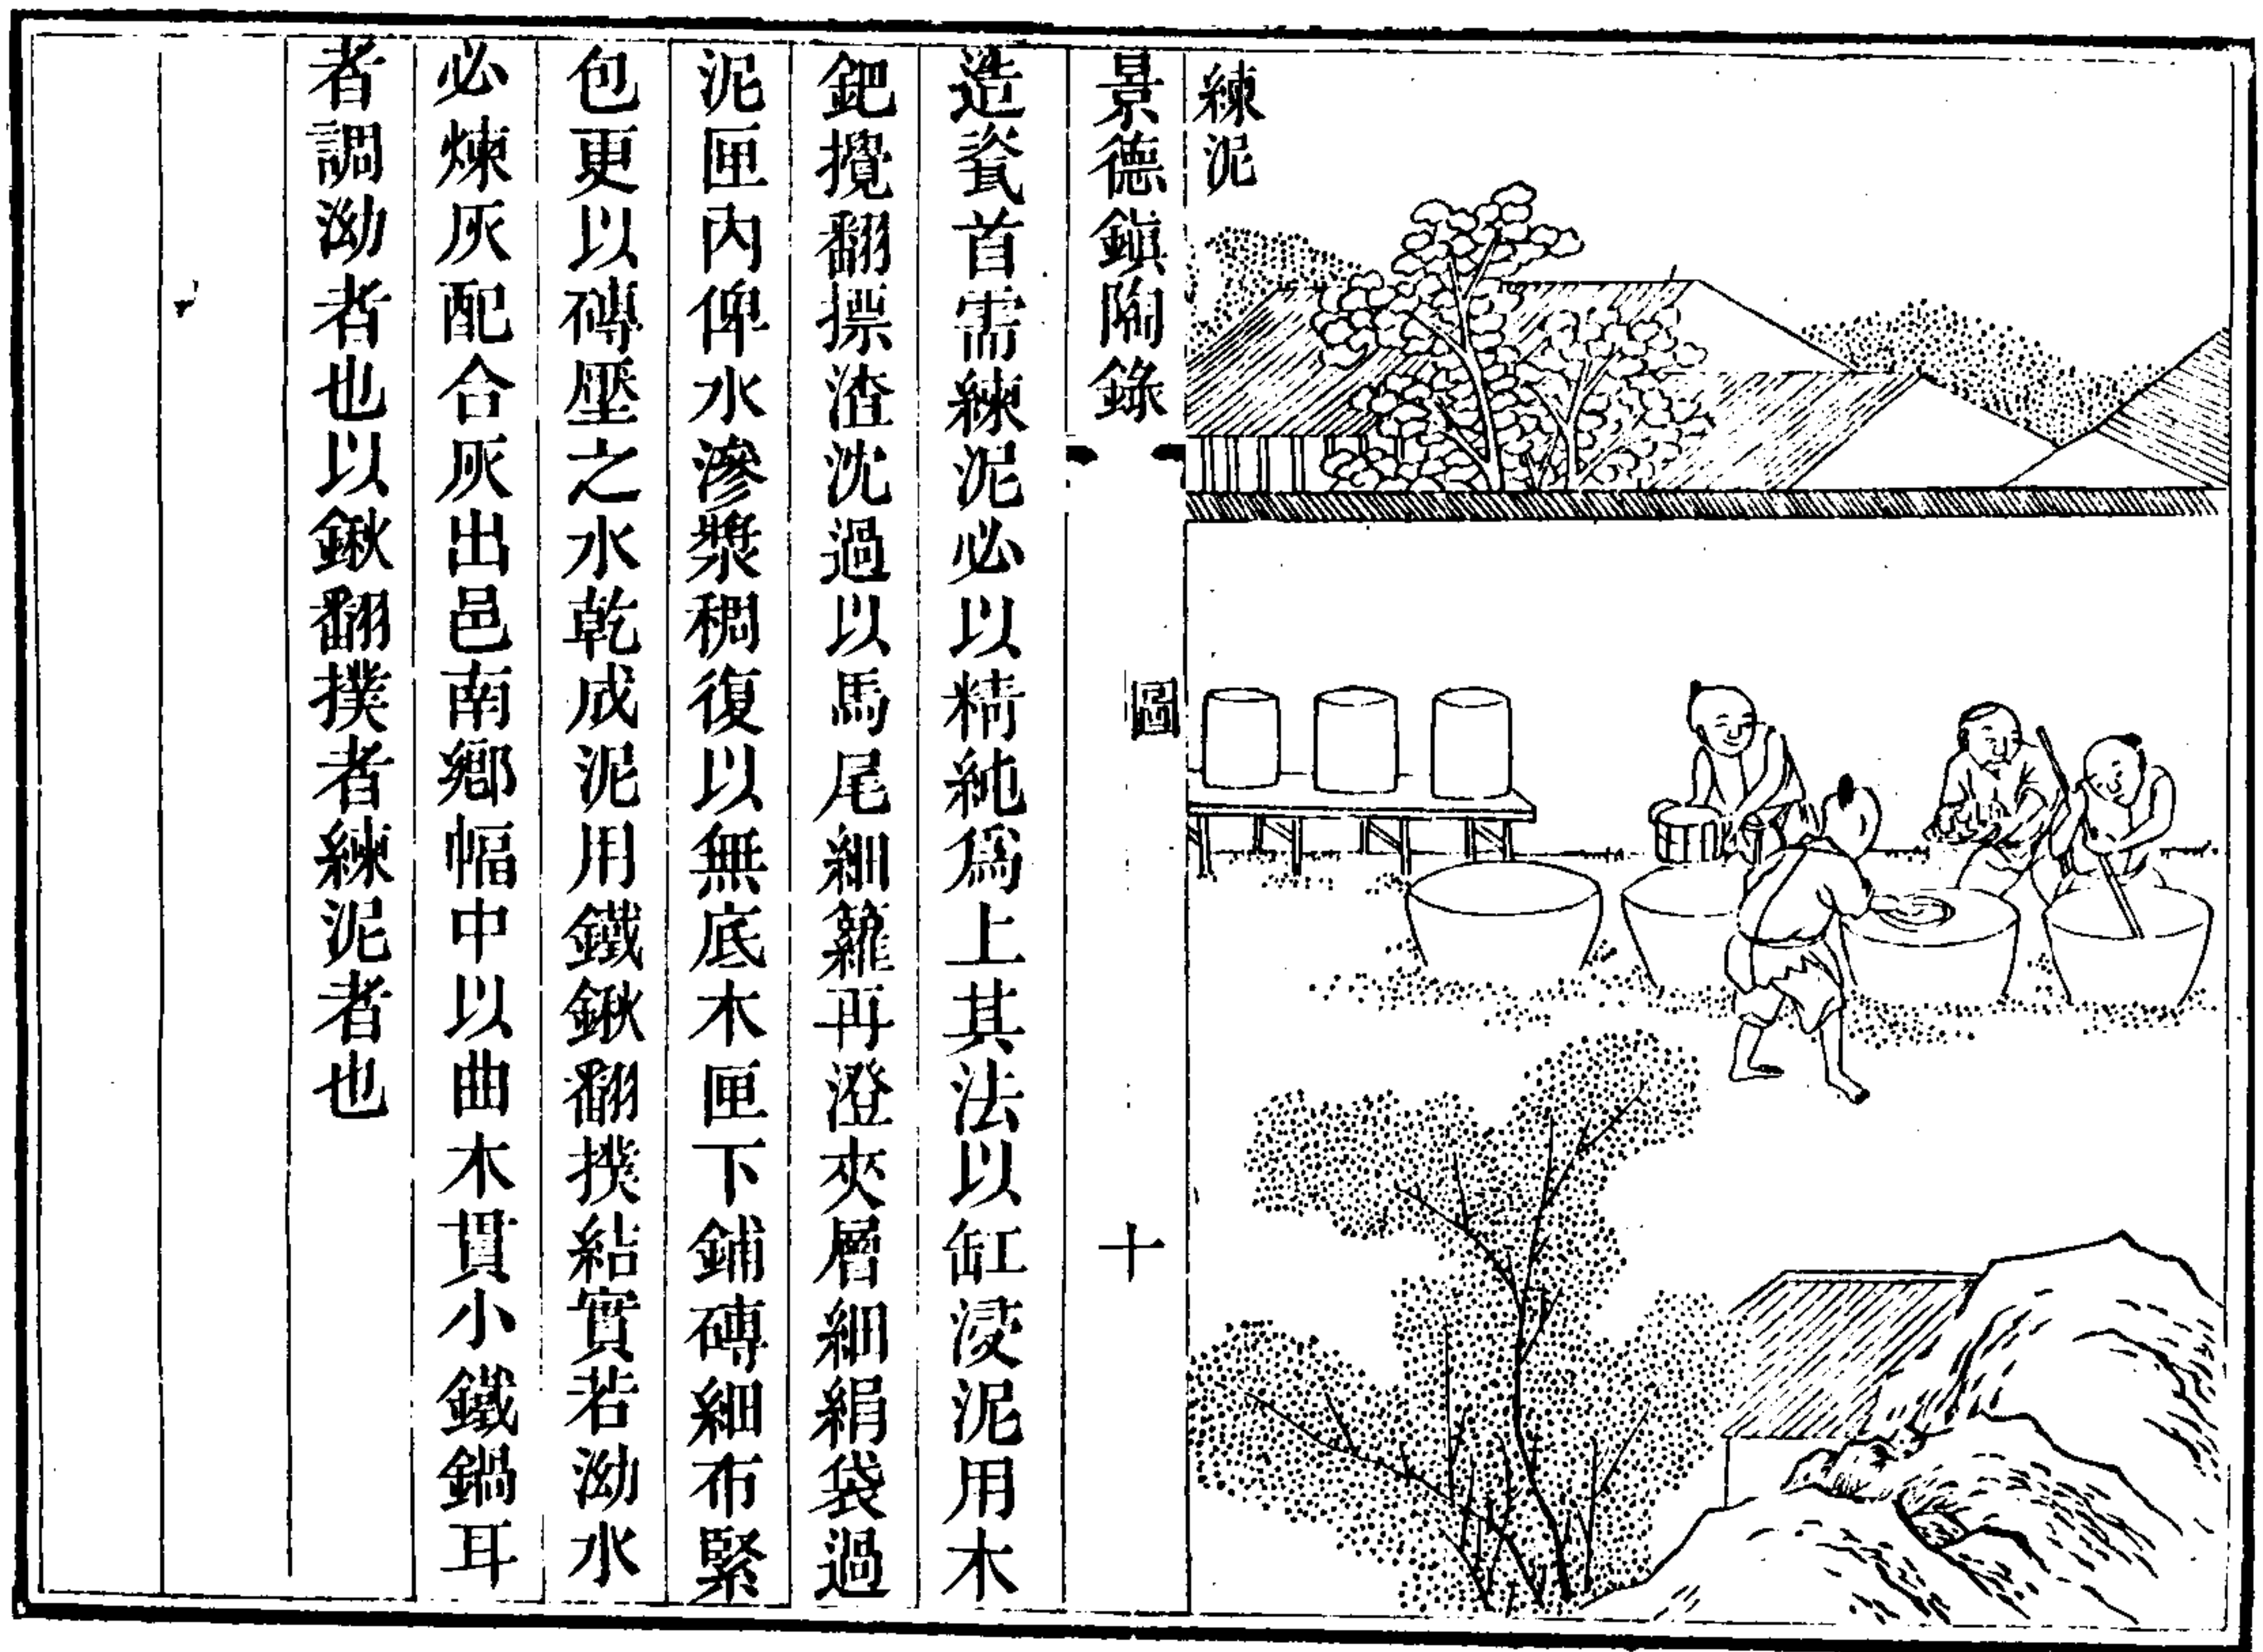 練泥
景德鎭陶錄
圖
十
造瓷首需練泥必以精純爲上其法以缸浸泥用木
鈀攪翻摽渣沈過以馬尾細籮再澄夾層細絹袋過
泥匣內俾水滲漿稠復以無底木匣下鋪磚細布緊
包更以磚壓之水乾成泥用鐵鍬翻撲結實若泑水
必煉灰配合灰出邑南鄉幅中以曲木貫小鐵鍋耳
者調泑者也以鍬翻撲者練泥者也